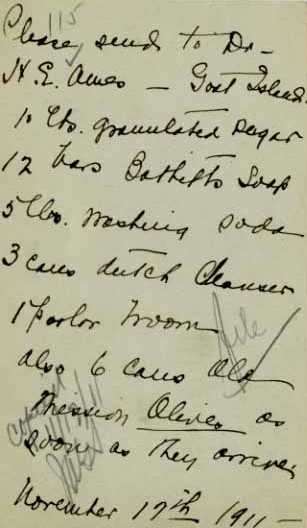 115
Please send to Dr-
H. E. Ames - Goat Island.
10 lbs. granulated sugar
12 bars Babbitts Soap
5 lbs. washing soda
3 cans dutch Cleanser
1 parlor broom
file
also 6 cans Old
Mission Olives as
soon as they arrive,
November 17th 1911-